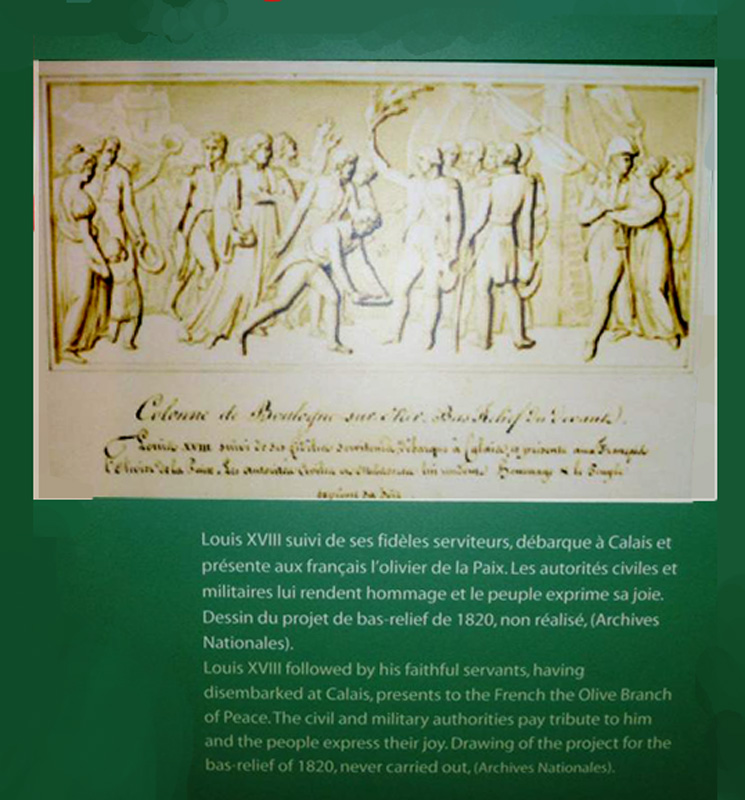 Colonne de Boulogne sur Mer. Bas Relief du Devant.
Louis XVIII suivi de ses fidèles serviteurs, débarque à Calais, et présente aux Français
l'Olivier de la Paix. Les autorités Civiles et Militaires lui rendent Hommage & le Peuple
exprime sa Joie
Louis XVIII suivi de ses fidèles serviteurs, débarque à Calais et
présente aux français l'olivier de la Paix. Les autorités civiles et
militaires lui rendent hommage et le peuple exprime sa joie.
Dessin du projet de bas-relief de 1820, non réalisé, (Archives
Nationales).
Louis XVIII followed by his faithful servants, having
disembarked at Calais, presents to the French the Olive Branch
of Peace. The civil and military authorities pay tribute to him
and the people express their joy. Drawing of the project for the
bas-relief of 1820, never carried out, (Archives Nationales).